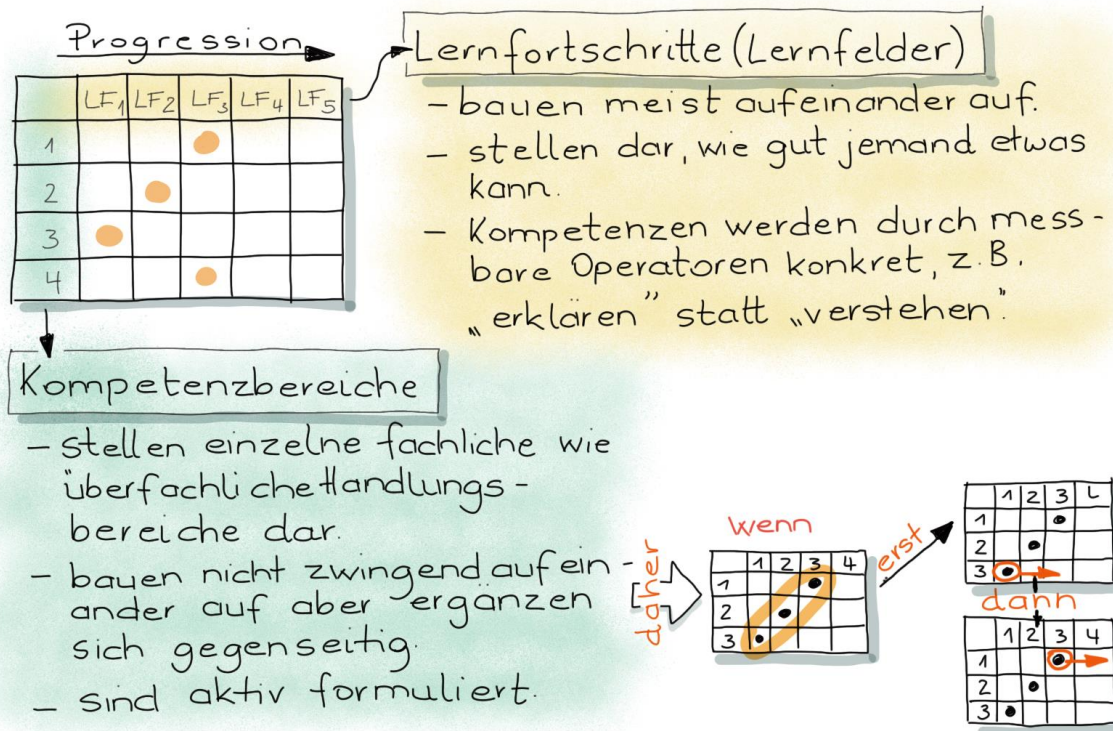 Progression
LF1 LF2 LF3 LF4 LF5
1
2
3
4
Lernfortschritte (Lernfelder)
- bauen meist aufeinander auf.
- stellen dar, wie gut jemand etwas
kann.
- Kompetenzen werden durch mess-
bare Operatoren konkret, z.B.
„erklären" statt „verstehen".
Kompetenzbereiche
- stellen einzelne fachliche wie
überfachliche Handlungs-
bereiche dar.
- bauen nicht zwingend aufein-
ander auf aber ergänzen
sich gegenseitig.
- sind aktiv formuliert.
daher
wenn
1 2 3 4
1
2
3
erst
1 2 3 L
1
2
3
dann
1 2 3 4
1
2
3